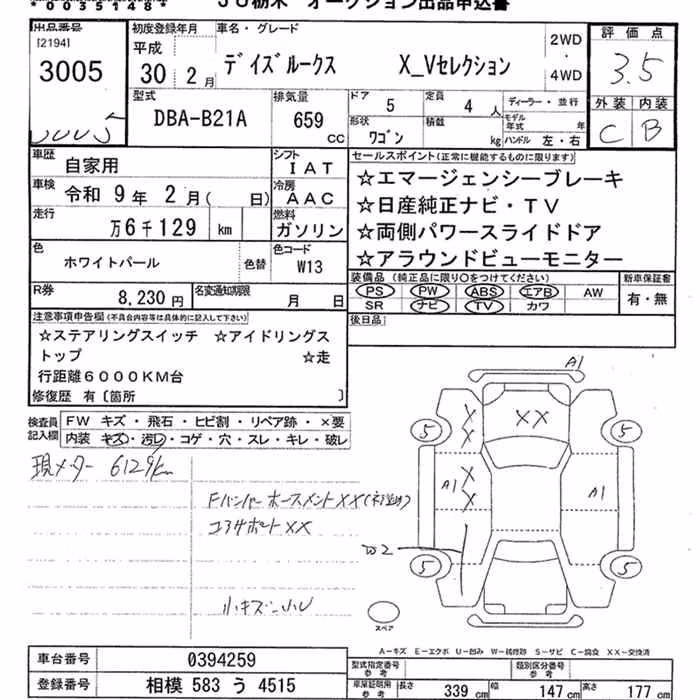 *0035148*
JU栃木 オークション出品申込書
出品番号
[2194]
3005
初度登録年月
平成
30 2月
車名・グレード
デイズルークス X_Vセレクション
2WD
・
4WD
評価点
3.5
外装 内装
C B
型式
DBA-B21A
排気量
659
CC
ドア
5
定員
4 人
形状
ワゴン
積載
kg
ディーラー・並行
モデル年式 年
ハンドル 左・右
車歴
自家用
シフト
IAT
車検
令和 9年 2月( 日)
冷房
AAC
走行
万6千129 km
燃料
ガソリン
色
ホワイトパール
色替
色コード
W13
R券
8,230円
名変通知期限
月 日
セールスポイント(正常に機能するものに限ります)
☆エマージェンシーブレーキ
☆日産純正ナビ・TV
☆両側パワースライドドア
☆アラウンドビューモニター
装備品 (純正品に限り○をつけてください)
PS PW ABS エアB AW
SR ナビ TV カワ
新車保証書
有・無
後日品
注意事項申告欄(不具合内容等は具体的に記入して下さい)
☆ステアリングスイッチ ☆アイドリングス
トップ ☆走
行距離6000KM台
修復歴 有〔箇所 〕
検査員
記入欄
FW キズ・飛石・ヒビ割・リペア跡・×要
内装 キズ・汚レ・コゲ・穴・スレ・キレ・破レ
現メーター 6129km
Fバンパーホースメント××
コアサポート××
小キズ・小U
A1
××
×
×
5
5
A1
×
×
A1
W2
5
5
スペア
A-キズ E-エクボ U-凹み W-補修跡 S-サビ C-腐食 XX-交換済
車台番号
0394259
登録番号
相模 583 う 4515
型式指定番号
参考
類別区分番号
参考
車庫証明用
参考
長さ 339 cm
幅 147 cm
高さ 177 cm